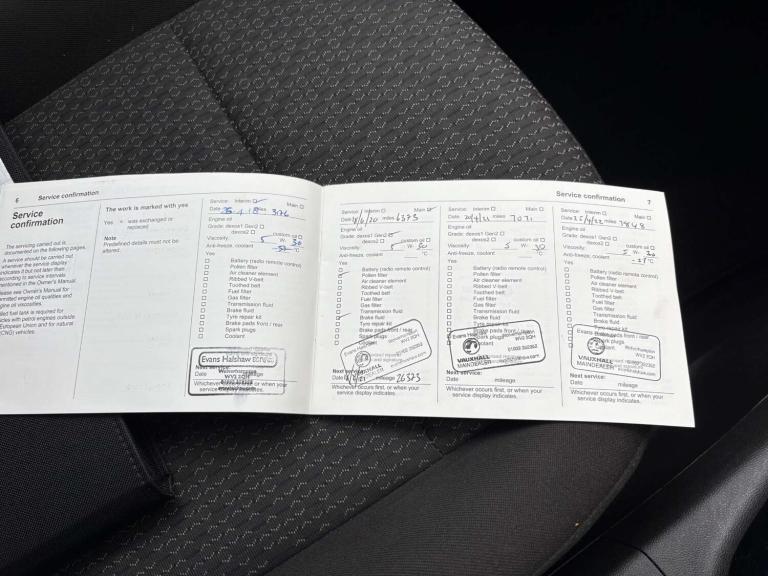 6 Service confirmation
Service
confirmation
The servicing carried out is
documented on the following pages.
A service should be carried out
whenever the service display
indicates it but not later than
according to service intervals
mentioned in the Owner's Manual.
Please see Owner's Manual for
permitted engine oil qualities and
engine oil viscosities.
fuel tank is required for
vehicles with petrol engines outside
European Union and for natural
(CNG) vehicles.
The work is marked with yes
Yes = was exchanged or
replaced
Note
Predefined details must not be
altered.
Service: Interim Main
Date miles 376
Engine oil
Grade: dexos1 Gen2
dexos2 custom oil
Viscosity: 5 W- 30
Anti-freeze, coolant °C
Yes
Battery (radio remote control)
Pollen filter
Air cleaner element
Ribbed V-belt
Toothed belt
Fuel filter
Gas filter
Transmission fluid
Brake fluid
Tyre repair kit
Brake pads front / rear
Spark plugs
Coolant
Evans Halshaw
Wolverhampton
WV2 2QH
Next service:
Date mileage
Whichever occurs first, or when your
service display indicates.
Service: Interim Main
Date /6/20 miles 6373
Engine oil
Grade: dexos1 Gen2
dexos2 custom oil
Viscosity: 5 W- 30
Anti-freeze, coolant °C
Yes
Battery (radio remote control)
Pollen filter
Air cleaner element
Ribbed V-belt
Toothed belt
Fuel filter
Gas filter
Transmission fluid
Brake fluid
Tyre repair kit
Brake pads front / rear
Spark plugs
Evans Halshaw
Date mileage 26373
Whichever occurs first, or when your
service display indicates.
Service confirmation 7
Service: Interim Main
Date 20/4/21 miles 7071
Engine oil
Grade: dexos1 Gen2
dexos2 custom oil
Viscosity: 5 W- 30
Anti-freeze, coolant °C
Yes
Battery (radio remote control)
Pollen filter
Air cleaner element
Ribbed V-belt
Toothed belt
Fuel filter
Gas filter
Transmission fluid
Brake fluid
Tyre repair kit
Brake pads front / rear
Spark plugs
Coolant
VAUXHALL
MAINDEALER
Next service:
Date mileage
Whichever occurs first, or when your
service display indicates.
Service: Interim Main
Date 25/4/22 miles 7848
Engine oil
Grade: dexos1 Gen2
dexos2 custom oil
Viscosity: 5 W- 30
Anti-freeze, coolant °C
Yes
Battery (radio remote control)
Pollen filter
Air cleaner element
Ribbed V-belt
Toothed belt
Fuel filter
Gas filter
Transmission fluid
Brake fluid
Tyre repair kit
Brake pads front / rear
Spark plugs
Coolant
Evans Halshaw Wolverhampton
VAUXHALL
MAINDEALER
Next service:
Date mileage
Whichever occurs first, or when your
service display indicates.